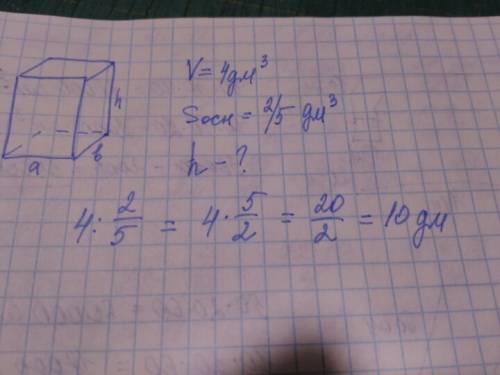 V = 4дм³
Sосн = 2/5 дм³
h - ?
h
a
b
4 : 2/5 = 4 · 5/2 = 20/2 = 10 дм